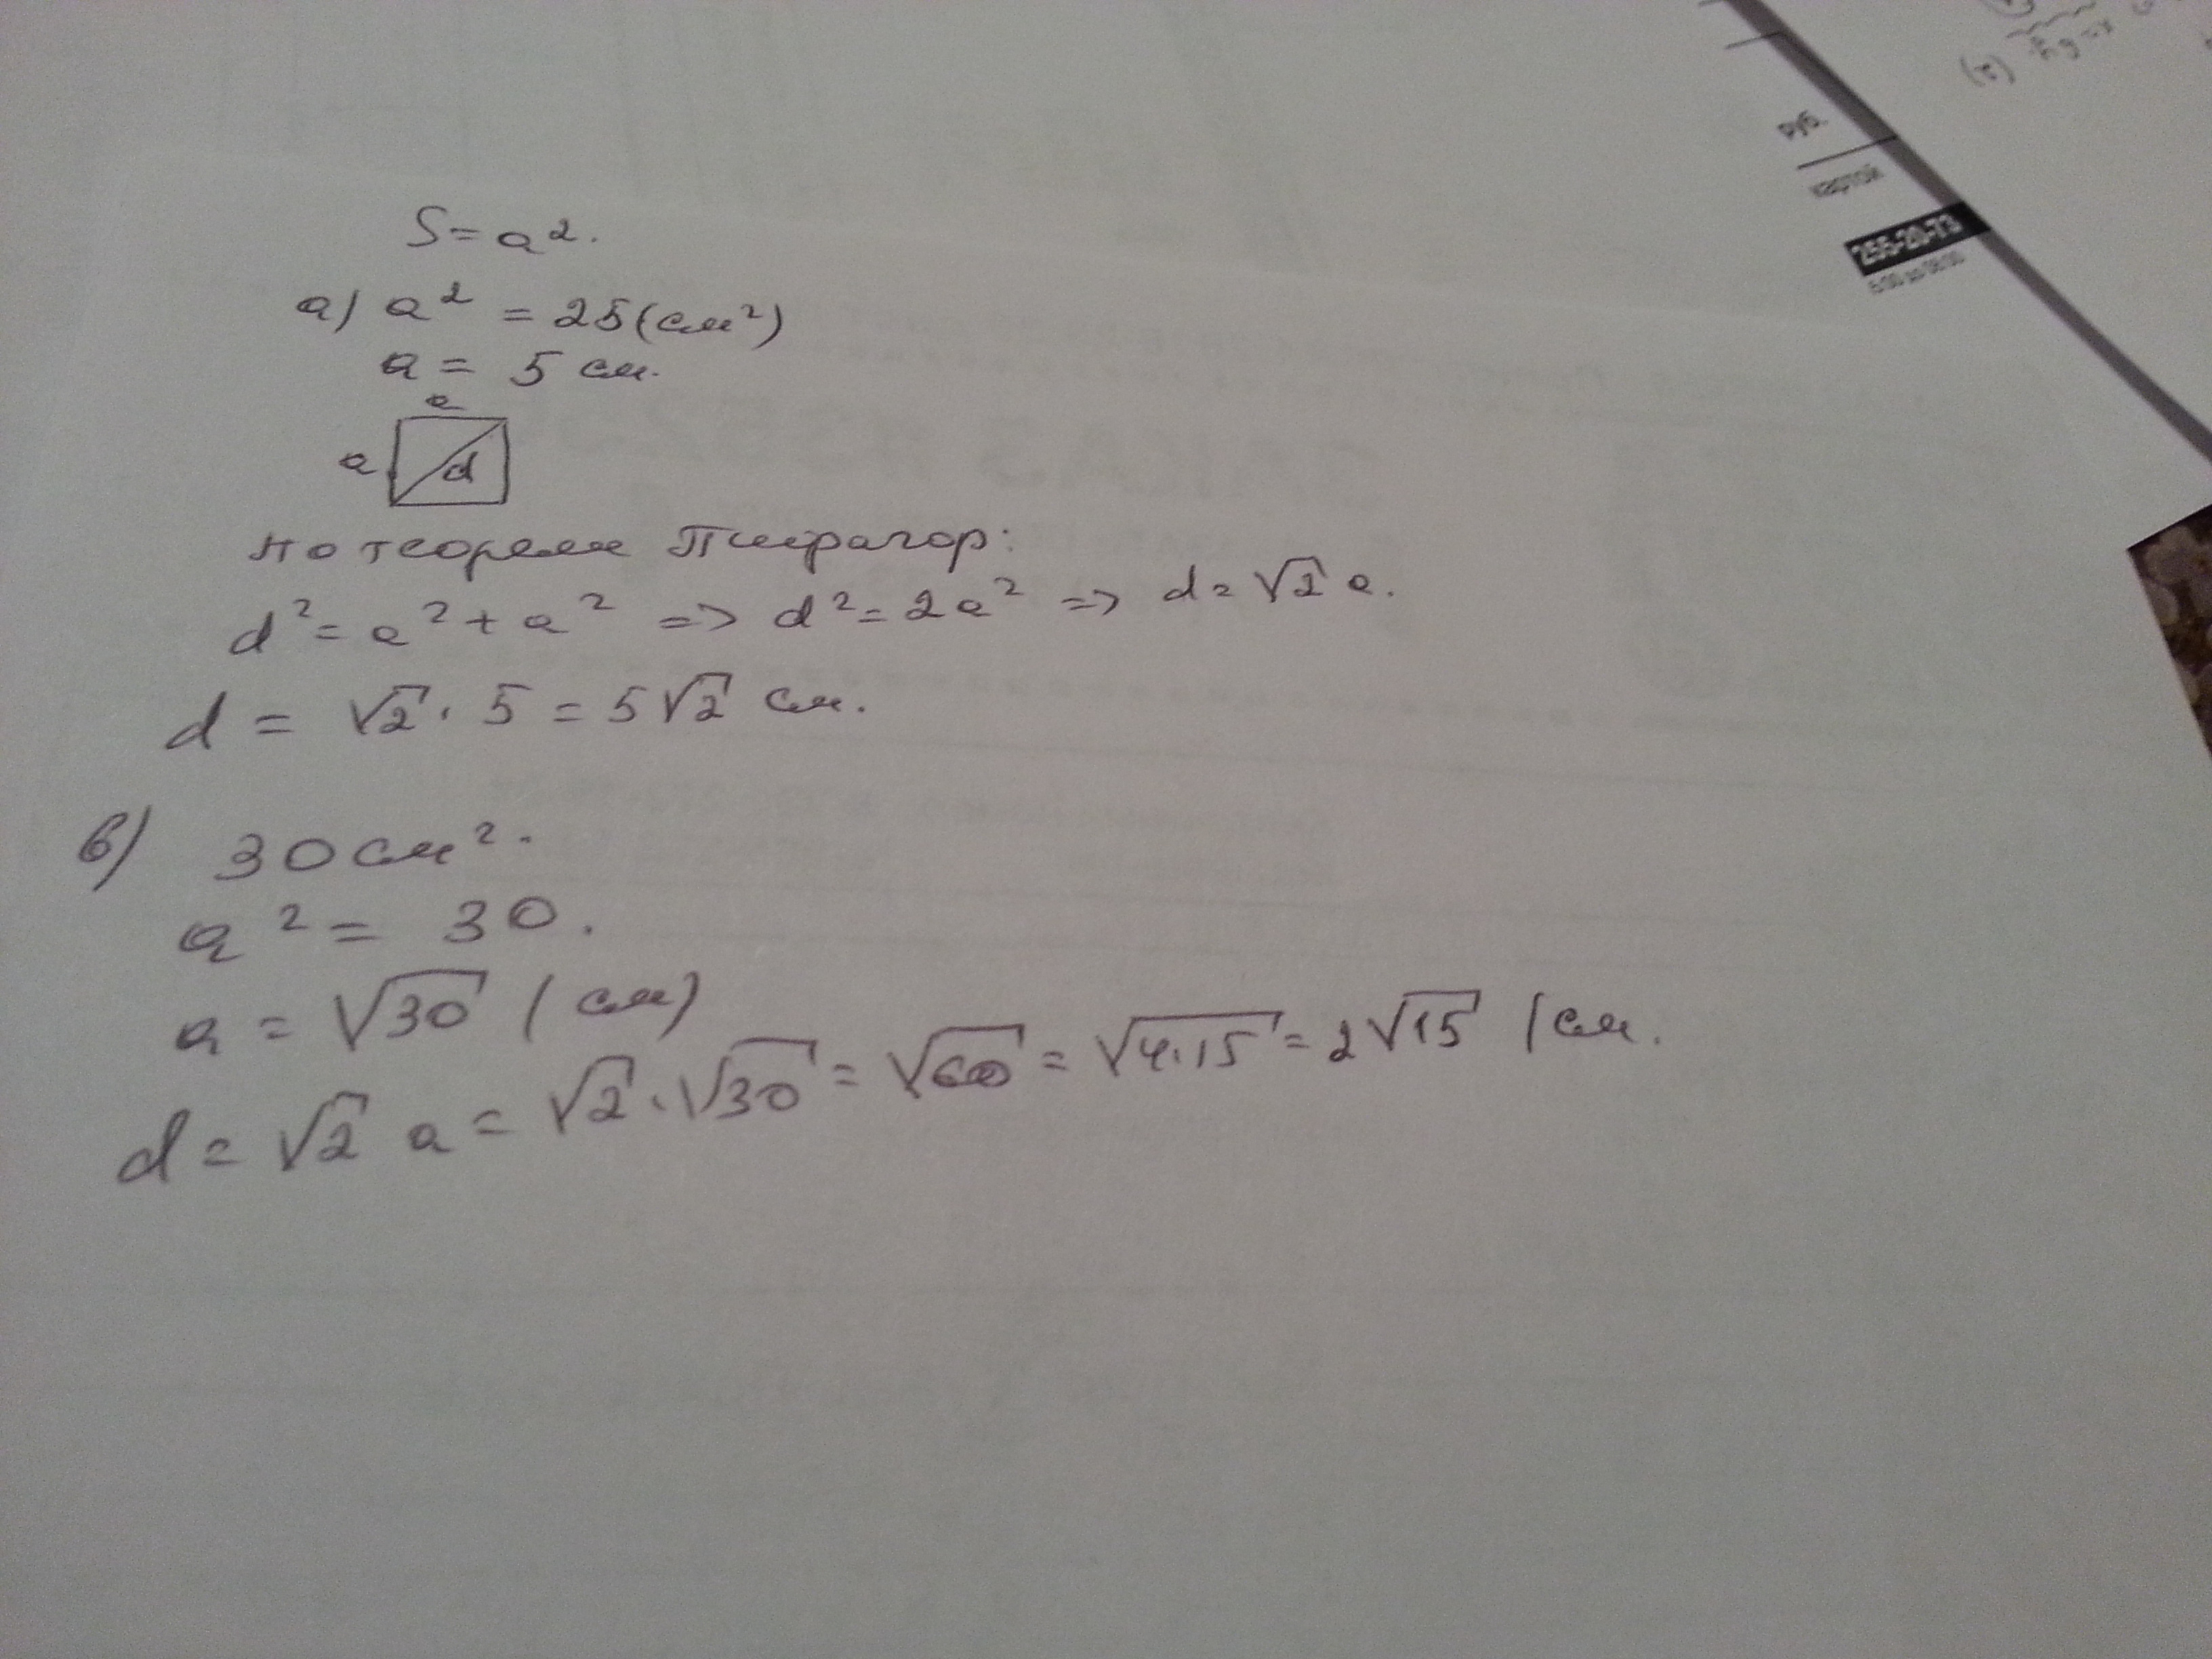 S = a².
а) a² = 25 (см²)
a = 5 см.
a
a d
По теореме Пифагор:
d² = a² + a² => d² = 2a² => d = √2 a.
d = √2 · 5 = 5√2 см.
в) 30 см².
a² = 30.
a = √30 (см)
d = √2 a = √2 · √30 = √60 = √4·15 = 2√15 (см.
руб.
картой
255-20-73